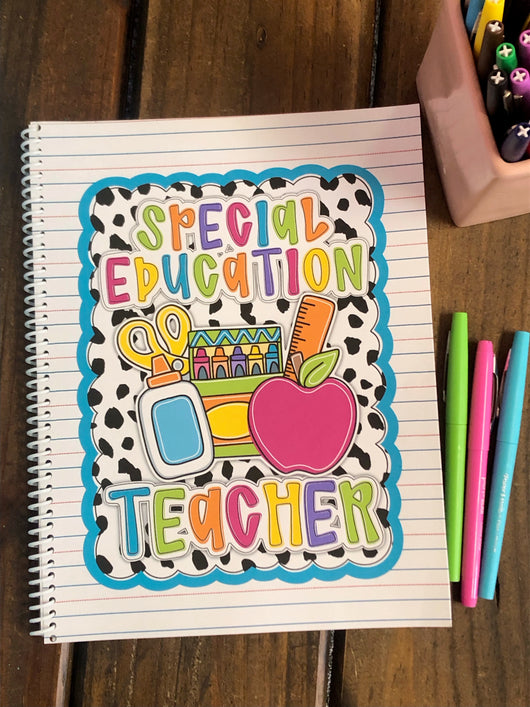 SPECIAL
EDUCATION
TEACHER